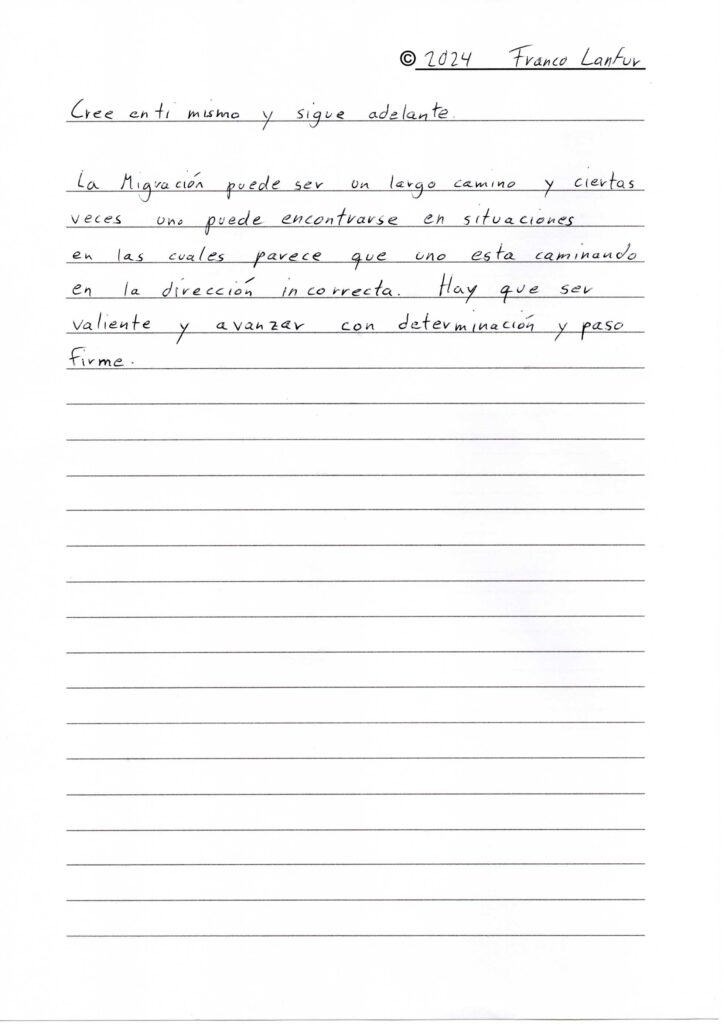 © 2024 Franco Lantur
Cree en ti mismo y sigue adelante.
La Migración puede ser un largo camino y ciertas
veces uno puede encontrarse en situaciones
en las cuales parece que uno esta caminando
en la dirección incorrecta. Hay que ser
valiente y avanzar con determinación y paso
firme.